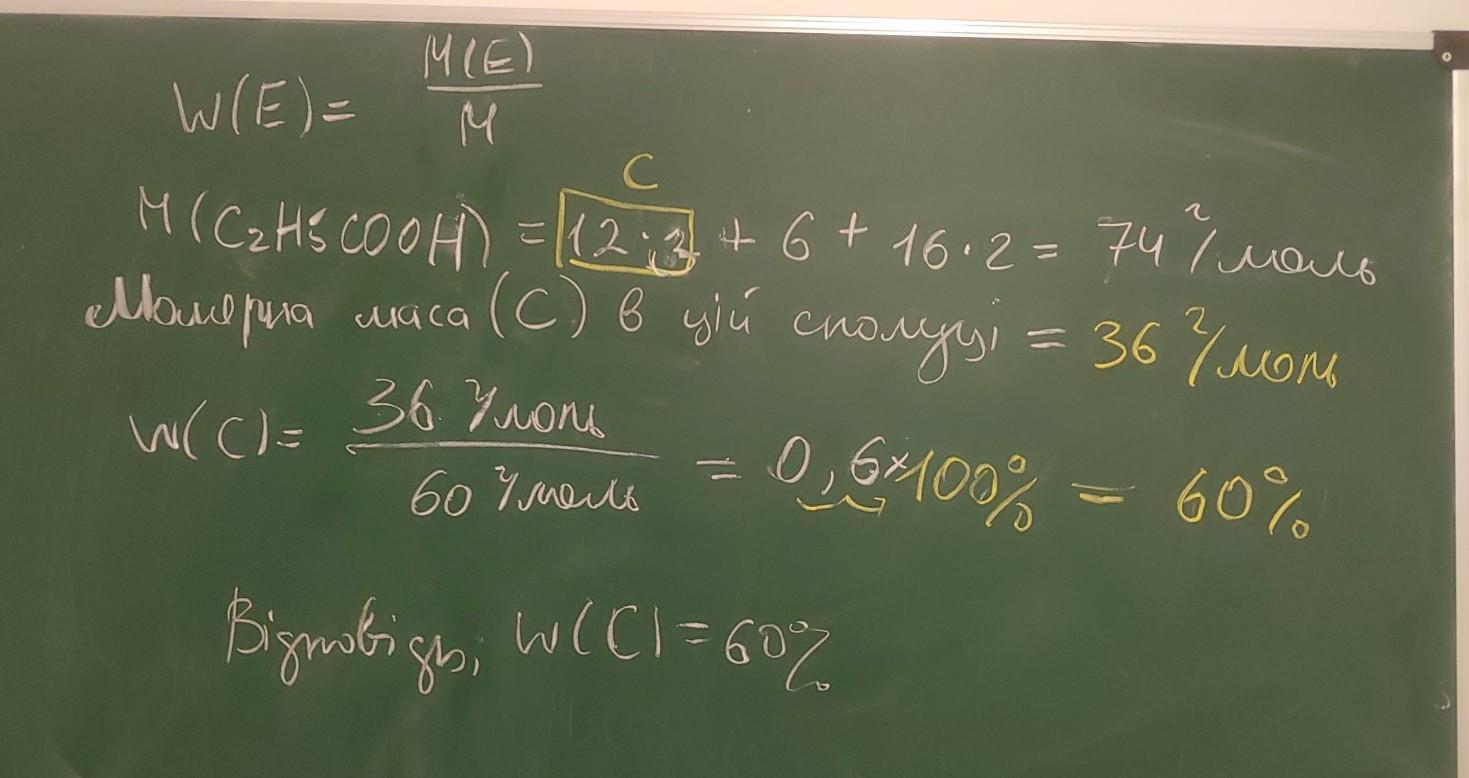 W(E) = M(E)/M
C
M(C2H5COOH) = 12·3 + 6 + 16·2 = 74 г/моль
Молярна маса (C) в цій сполуці = 36 г/моль
W(C) = 36 г/моль / 60 г/моль = 0,6×100% = 60%
Відповідь, W(C) = 60%